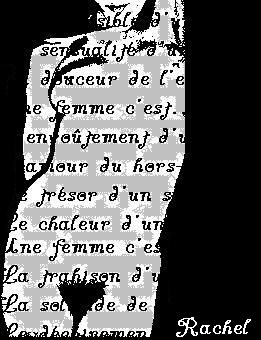 sible d'u
sensualité d'u
douceur de l'e
ne femme c'est
envoûtement d'u
amour du hors
e trésor d'un s
Le chaleur d'un
Une femme c'es
La trahison d'u
La soli de de
Rachel